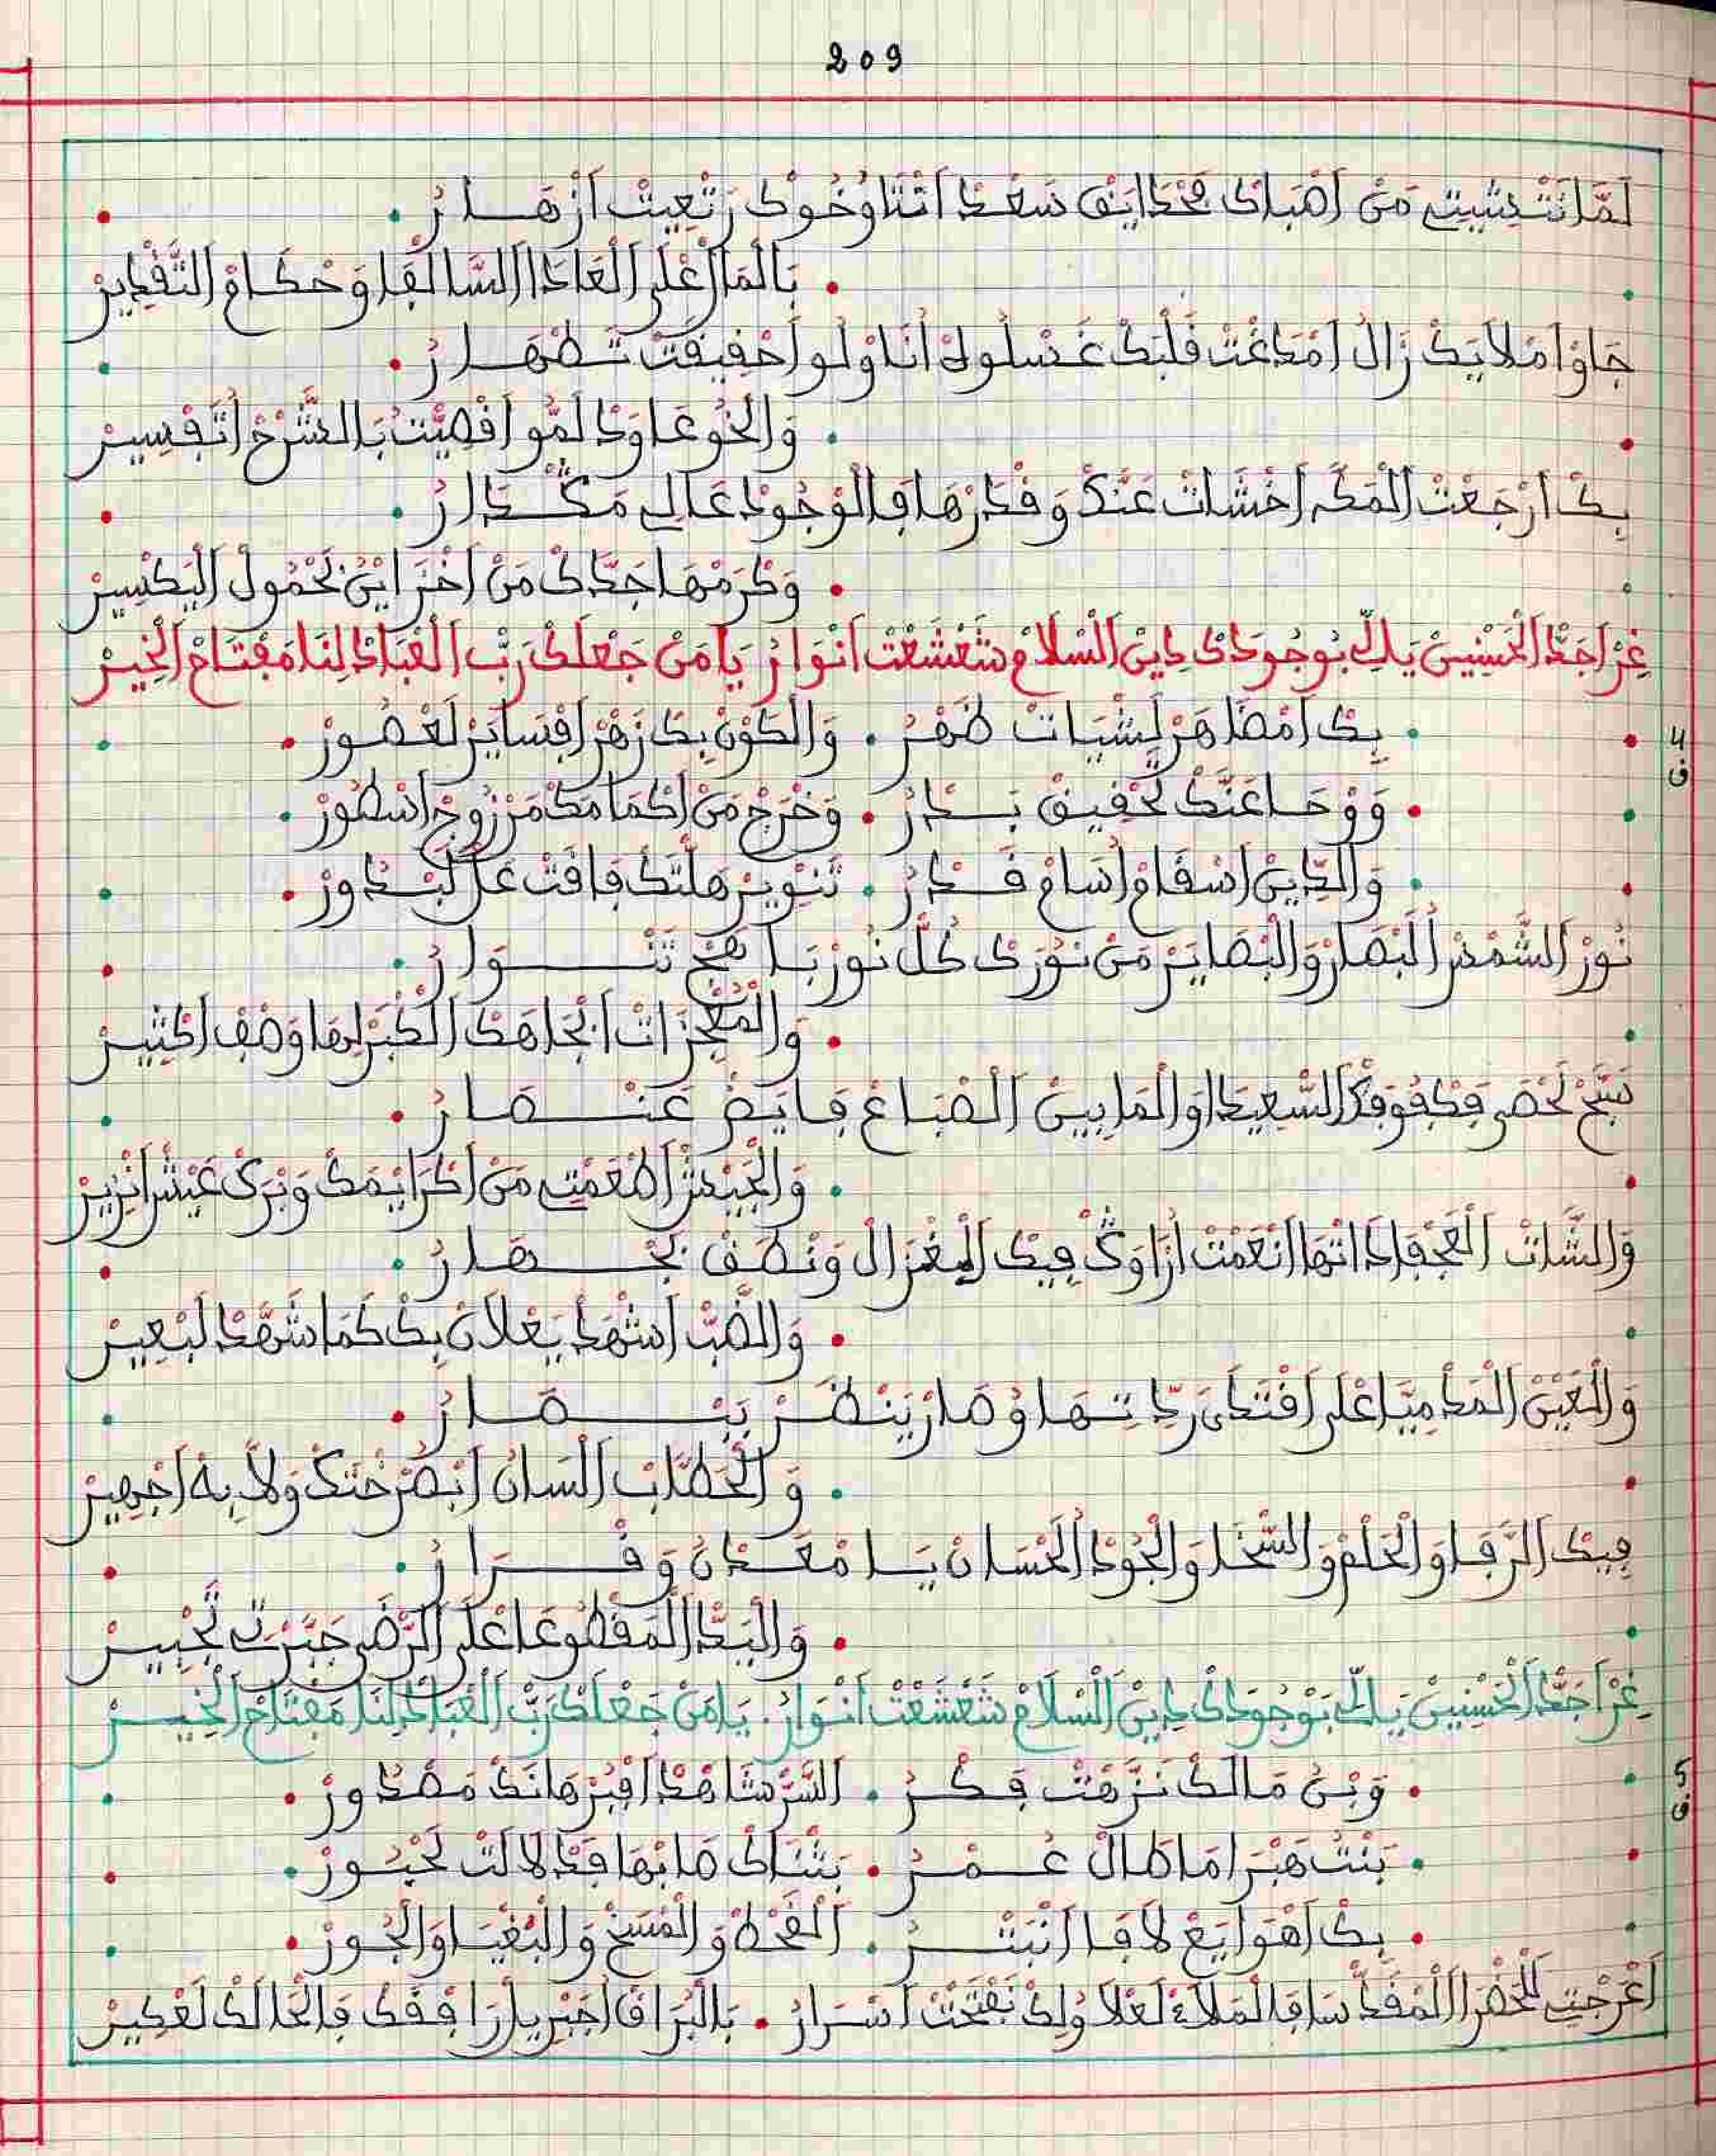 209
لَمَّا نَتْـشِيتِ مَنْ اَصْبَاكْ فَخْدَايَنْ سَعْدْ اَتْنَاوْخُوكْ رَتْعِيتْ اَزْهَــارُ
بَالْمَالْ عْلَى الْعَادَا السَّالْفَا وَحْكَامْ التَّقْدِيرْ
جَاوْ اَمْلَايَكْ زَالْ اَمْدَاغْتْ قَلْبَكْ غَسْلُوهْ اَنَا وْلُو اَحْقِيقَتْ تَـطْهَــارُ
وَالْخُو عَاوَدْ لَمُّو اَقْصِيّتُ بَالشَّرْحْ اُتَفْسِيرْ
بِكْ اَرْجَعْتْ الْمَكَّه اَخْشَاتْ عَنْدَكْ وَقْدَرْهَا فَالْوْجُودْ عَالِي مَـكْـدَارُ
وَكْرَمْهَا جَدَّكْ مَنْ اَخْزَايْنُ بَحْمُولْ الْيَكْسِيرْ
غِرْ اَجَدّْ الْحَسْنِينْ يَلِّ بُوجُودَكْ دِينْ السْلَامْ شَعْشَعْتْ اَنْوَارُ يَا مَنْ جَعْلَكْ رَبّْ الْعْبَادْ لِنَا مَفْتَاحْ الْخِيرْ
4 ق
بِكْ اَمْظَاهَرْ لَشْيَاتْ ظَهْرُ . وَالْكَوْنْ بِكْ زَهْرْ اَفْسَايَرْ لَعْصُورْ
وَوْحَا عَنَّكْ لَحْقِيقْ بَـدْرُ . وَخْرَجْ مَنْ اَكْمَامَكْ مَرْزُوجْ اَسْطُورْ
وَالدِّينْ اَسْقَامْ اُسَامْ قَـدْرُ . تَنْوِيرْ مَلْتَكْ فَاقَتْ عَلْ لَبْـدُورْ
نُورْ الشَّمْسْ الْبْصَارْ وَالْبْصَايَرْ مَنْ نُورَكْ كُلّْ نُورْ بَاهَجْ تَنْــوَارُ
وَالْمُعْجِزَاتْ اَبْجَاهَكْ الْكَبْرْ لِهَا وَصْفْ اَكْثِيرْ
سَبَّحْ لَحْصَى فَكْفُوفَكْ السّْعِيدَا وَالْمَا بِينْ الصْبَاعْ فَايَضْ عَنْــصَارُ
وَالْجَيْشْ اَطْعَمْتِ مَنْ اَكْرَايْمَكْ وَبْرَكْ عَيْشْ اَنْزِيرْ
وَالشَّاتْ الْعَجْفَا دَاتْهَا اَنْعَمْتْ اُزَاوَكْ فِيكْ الْغْزَالْ وَنْطَقْ بَجْــهَارُ
وَالضَّبّْ اَشْهَدْ يَعْلَانْ بِكْ كَمَا شَهْدْ لَبْعِيرْ
وَالْعَيْنْ الْمَدْمِيَّا عْلَى اَقْتَدَى رَدِّتـهَا وْصَارْ يَنْظَـرْ بَبْــصَارُ
وَالْخَطَّابْ السَانُ اَبْصَرْخْتَكْ وَلَّا بِهْ اَجْهِيرْ
فِيكْ الرّْفَا وَالْحَلْمْ وَالسّْخَا وَالْجُودْ الْحْسَانْ يَـا مَعْـدَنْ وَقْــرَارُ
وَالْيَدّْ الْمَقْطُوعَا عْلَى الرّْضَى جَبَّرْتِ تَّجْبِيرْ
غِرْ اَجَدّْ الْحَسْنِينْ يَلِّ بُوجُودَكْ دِينْ السْلَامْ شَعْشَعْتْ اَنْوَارُ . يَا مَنْ جَعْلَكْ رَبّْ الْعْبَادْ لِنَا مَفْتَاحْ الْخِيـرْ
5 ق
وَبْنُ مَالَكْ نَزَّهْتْ فِـكْـرُ . السّْرْ شَاهْدْ اَفْبُرْهَانَكْ مَصْدُورْ
بَنْتْ هَبْرَا مَا طَالْ عُـمْـرُ . بَثْنَاكْ مَا بْهَا قَدْ لَالَتْ لَحْبُـورْ
بِكْ اَهْوَايَعْ لَافَا اَنْبَتْــرُ . الْقَحْطْ وَالْمَسْخْ وَالْبَغْيَا وَالْجُـورْ
اَعْرَجْتِ لَلْحَضْرَا الْمْقَدّْسَا فَالْمَلَاءْ لَعْلَا وُلِكْ نَفْتَحْتْ اَسْرَارُ . بَالْبْرَاقْ اَجْبْرِيلْ رَافْقَكْ فَالْحَالَكْ لَعْكِيرْ